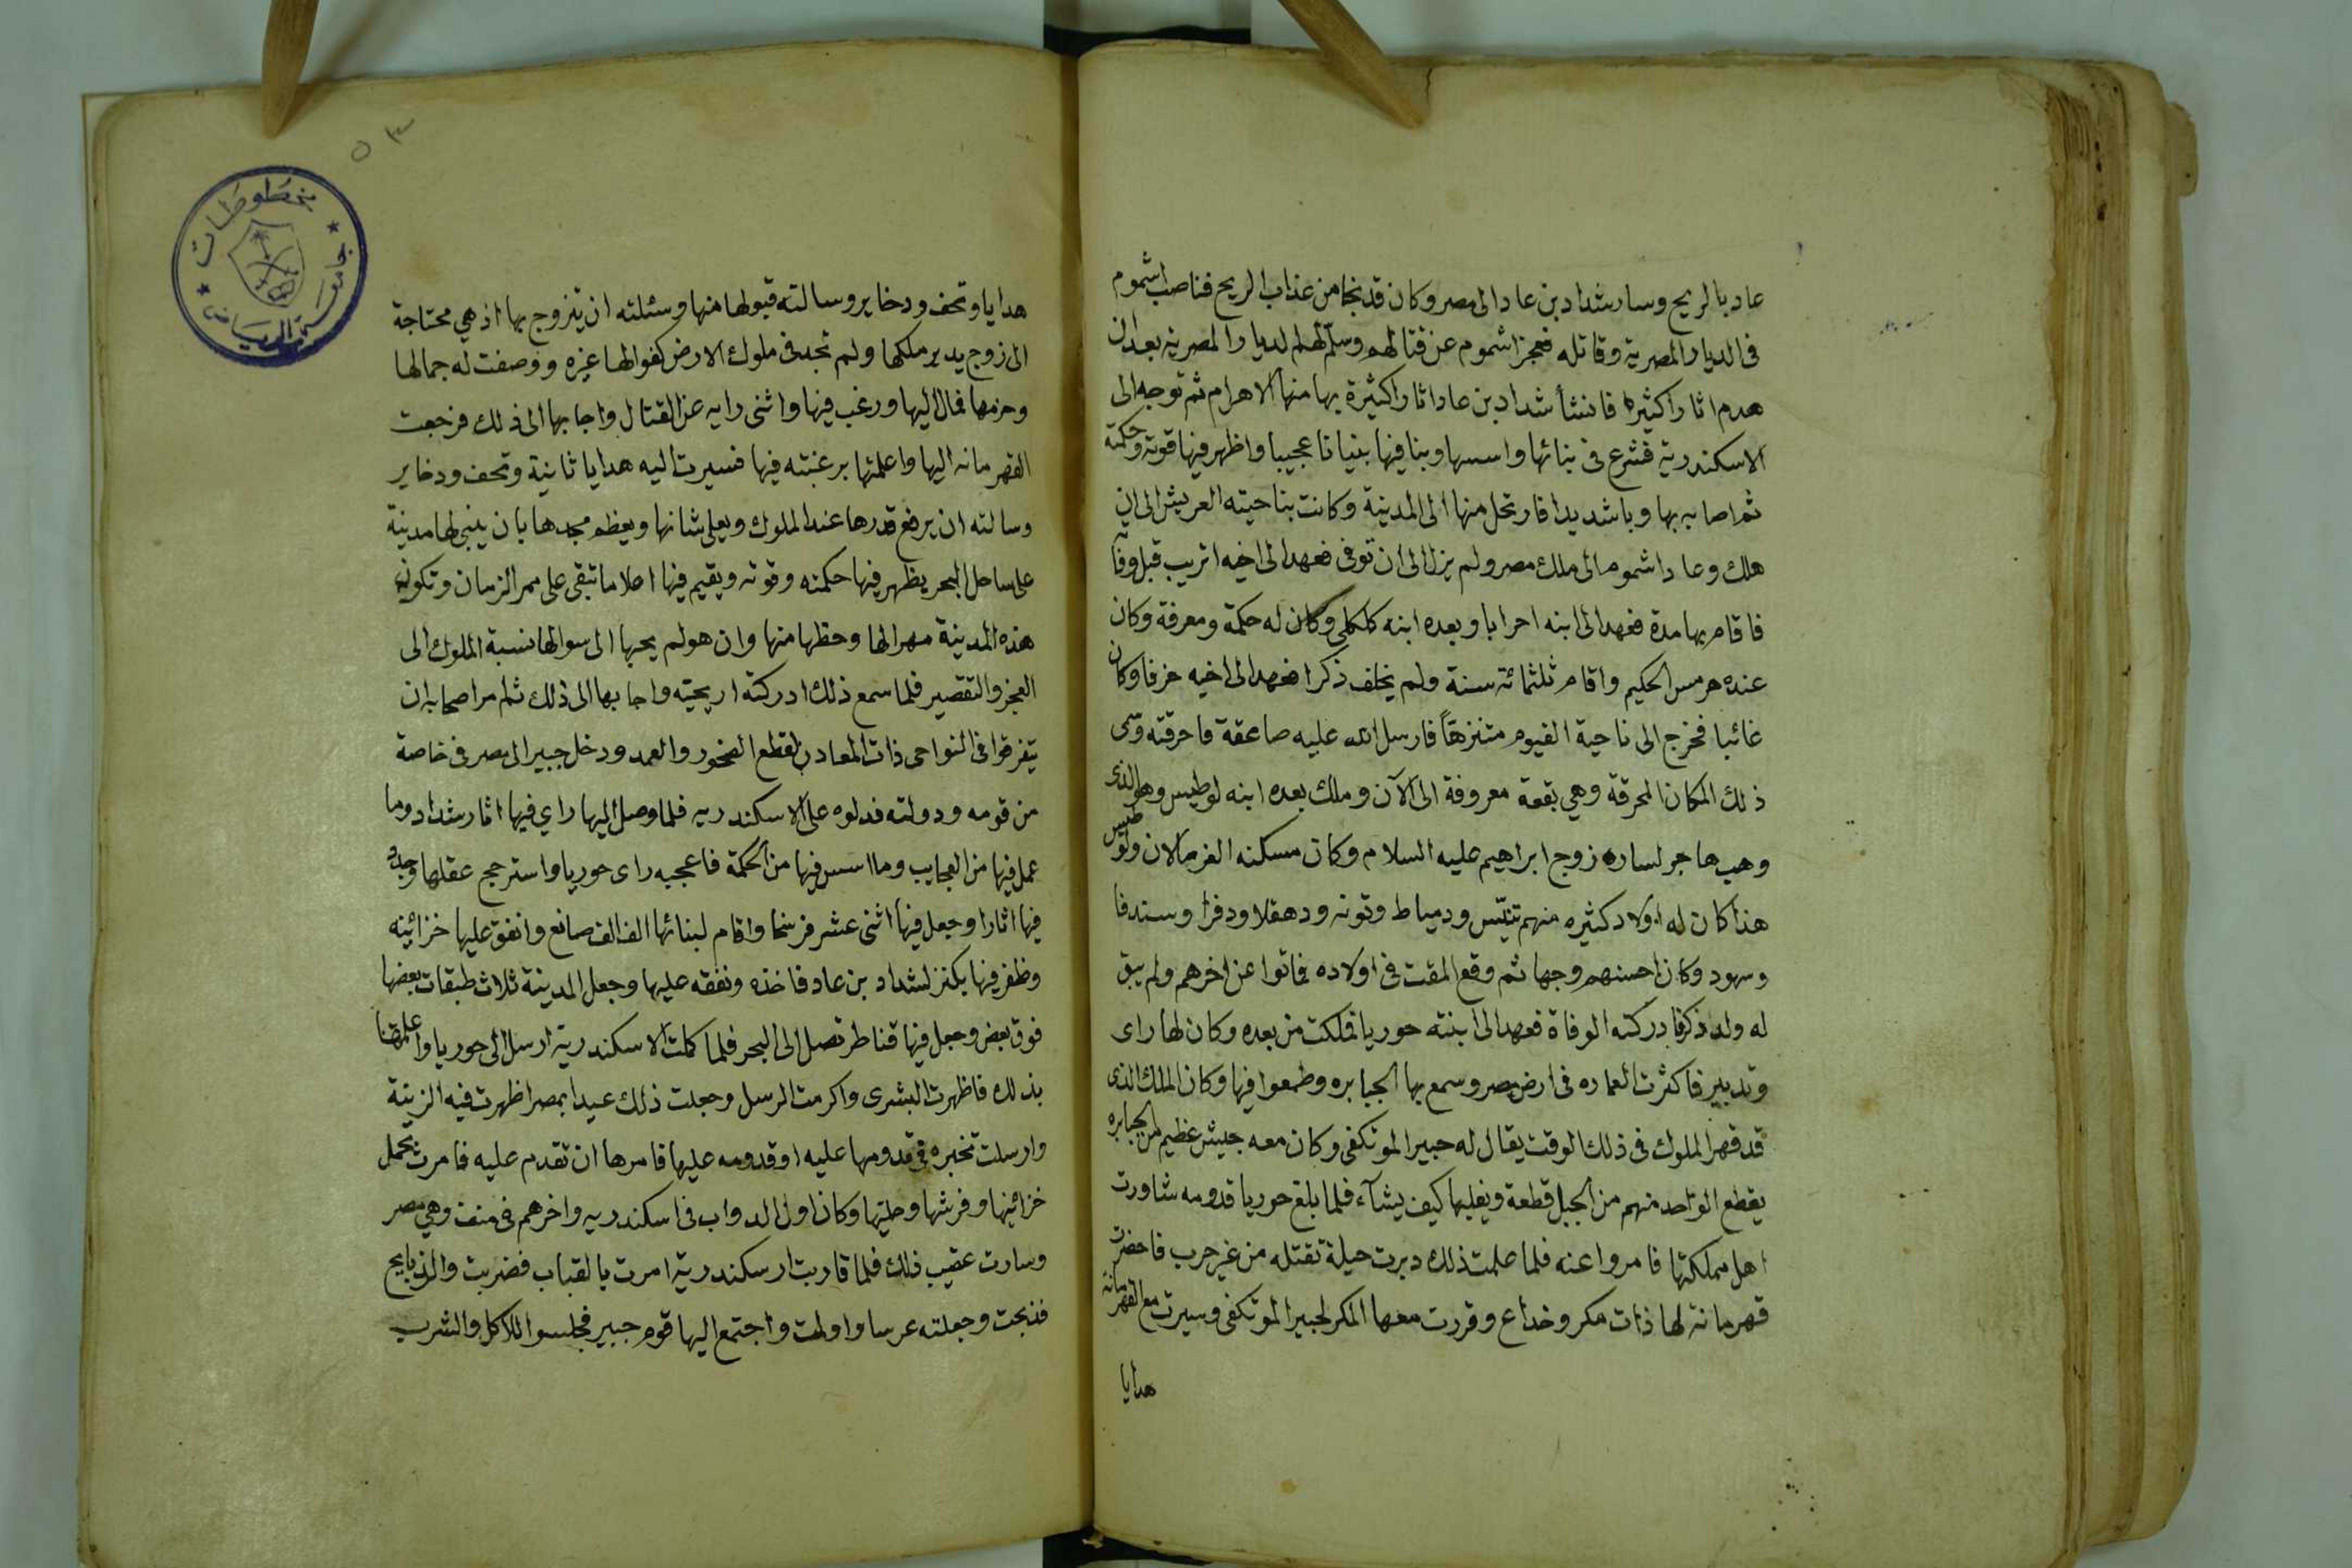 عاد بالريح وسار شداد بن عاد الى مصر وكان قد نجا من عذاب الريح فناصب اشموم
فى الديار المصرية وقاتله فعجز اشموم عن قتالهم وسلم لهم الديار المصرية بعد ان
هدم اثارا كثيره فانشأ شداد بن عاد اثارا كثيرة بها منها الاهرام ثم توجه الى
الاسكندرية فشرع فى بنائها واسسها وبنا فيها بنيانا عجيبا واظهر فيها قوته وحكمته
ثم اصابه بها وبا شديدا فارتحل منها الى المدينة وكانت بناحيته العريش الى ان
هلك وعاد اشموم الى ملك مصر ولم يزل الى ان توفى فعهد الى اخيه اتريب قبل وفا
فاقام بها مدة فعهد الى ابنه احرابا وبعده ابنه كلكلى وكان له حكمة ومعرفة وكان
عنده هرمس الحكيم واقام ثلثمائة سنة ولم يخلف ذكرا فعهد الى اخيه حرفا وكان
غائبا فخرج الى ناحية الفيوم متنزهاً فارسل الله عليه صاعقة فاحرقته وسمى
ذلك المكان المحرقة وهي بقعة معروفة الى الآن وملك بعده ابنه لوطيس وهو الذى
وهب هاجر لساره زوج ابراهيم عليه السلام وكان مسكنه الفرما الان ولوطيس
هذا كان له اولاد كثيره منهم تنيّس ودمياط وتونه ودهقلا ودفرا وسندفا
وسهود وكان احسنهم وجها ثم وقع المقت فى اولاده فماتوا عن اخرهم ولم يبق
له ولد ذكر فادركته الوفاة فعهد الى ابنته حوريا فملكت من بعده وكان لها راى
وتدبير فاكثرت العماره فى ارض مصر وسمع بها الجبابره وطمعوا فيها وكان الملك الذى
قد قهر الملوك فى ذلك الوقت يقال له جبير الموتكفى وكان معه جيش عظيم من الجبابره
يقطع الواحد منهم من الجبل قطعة ويقلبها كيف يشآء فلما بلغ حوريا قدومه شاورت
اهل مملكتها فامروا عنه فلما علمت ذلك دبرت حيلة تقتله من غير حرب فاحضرت
قهرمانة لها ذات مكر وخداع وقررت معها المكر لجبير الموتكفى وسيرت مع القهرمانة
هدايا
٥٣
مخطوطات
جامعة الرياض
هدايا وتحف ودخاير وسالته قبولها منها وسئلته ان يتزوج بها اذ هي محتاجة
الى زوج يدير ملكها ولم تجد فى ملوك الارض كفوا لها غيره ووصفت له جمالها
وحزمها فمال اليها ورغب فيها واثنى رايه عن القتال واجابها الى ذلك فرجعت
القهرمانه اليها واعلمتها برغبته فيها فسيرت اليه هدايا ثانية وتحف ودخاير
وسالته ان يرفع قدرها عند الملوك ويعلى شانها ويعظم مجدها بان يبنى لها مدينة
على ساحل البحر يظهر فيها حكمته وقوته ويقيم فيها اعلاما تبقى على ممر الزمان وتكون
هذه المدينة مهرا لها وحظها منها وان هو لم يجبها الى سوالها نسبة الملوك الى
العجز والتقصير فلما سمع ذلك ادركته اريحيته واجابها الى ذلك ثم امر اصحابه ان
يتفرقوا فى النواحى ذات المعادن لقطع الصخور والعمد ودخل جبير الى مصر فى خاصة
من قومه ودولته فدلوه على الاسكندريه فلما وصل اليها راي فيها اثار شداد وما
عمل فيها من العجايب وما اسس فيها من الحكمة فاعجبه راى حوريا واسترجح عقلها وجدد
فيها اثارا وجعل فيها اثنى عشر فرسخا واقام لبنائها الف الف صانع وانفق عليها خزائنه
وظفر فيها بكنز لشداد بن عاد فاخذه ونفقه عليها وجعل المدينة ثلاث طبقات بعضها
فوق بعض وجعل فيها قناطر تصل الى البحر فلما كملت الاسكندرية ارسل الى حوريا واعلمها
بذلك فاظهرت البشرى واكرمت الرسل وجعلت ذلك عيدا بمصر اظهرت فيه الزينة
وارسلت تخبره فى قدومها عليه او قدومه عليها فامرها ان تقدم عليه فامرت بحمل
خزائنها وفرشها وحليتها وكان اول الدواب فى اسكندريه واخرهم فى منف وهي مصر
وسارت عقيب ذلك فلما قاربت ارسكندرية امرت بالقباب فضربت والذبايح
فذبحت وجعلته عرسا واولمت واجتمع اليها قوم جبير فجلسوا للاكل والشرب